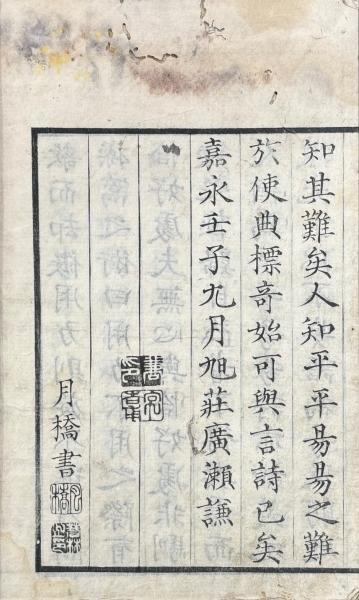 知其難矣人知平平易易之難
於使典標奇始可與言詩已矣
嘉永壬子九月旭莊廣瀨謙
月橋書